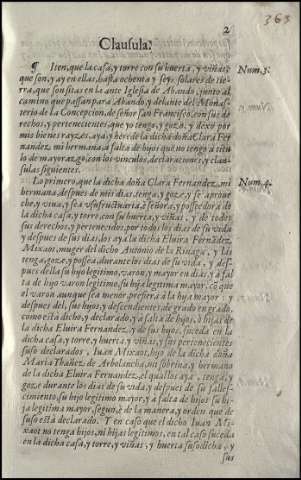 363
2
Clausula?
¶ Iten, que la casa, y torre con su huerta, y viñas,
que son, y ay en ellas, hasta ochenta y seys solares de tie-
rra, que son sitas en la ante Iglesia de Abando, junto al
camino que passan para Abando, y delante del Monas-
terio de la Concepcion, de señor san Francisco, con sus de
rechos, y pertenecientes, que yo tengo, y gozo, y dexo por
mis bienes rayzes, aya y herede la dicha doña Clara Fer-
nandez mi hermana, a falta de hijos que no tengo, a titu
lo de mayorazgo, con los vinculos, declaraciones, y clau-
sulas siguientes.
Num. 3.
La primero, que la dicha doña Clara Fernandez, mi
hermana, despues de mis dias, tenga, y goze, y se aproue
che, y viua, y sea vsufructuaria, señora, y posseedora de
la dicha casa, y torre, con su huerta, y viñas, y de todos
sus derechos, y pertenecidos, por todos los dias de su vida
y despues de sus dias, los aya la dicha Eluira Fernãdez
Mixaot, muger del dicho Antonio de la Rinaga, y la
tenga, goze, y possea, durante los dias de su vida, y des-
pues della su hijo legitimo, varon, y mayor en dias, y à fal
ta de hijo varon legitimo, su hija legitima mayor, cõ que
el varon aunque sea menor prefiera à la hija mayor: y
despues del, sus hijos, y descendientes de grado en grado,
como està dicho, y declarado, y à falta de hijos, ò hijas de
la dicha Eluira Fernandez, y de sus hijos, suceda en la
dicha casa, y torre, y huerta, y viñas, y sus pertenecientes
suso declarados, Iuan Mixaot, hijo de la dicha doña
Maria Ybañez de Arbolancha, mi sobrina, y hermano
de la dicha Eluira Fernandez, el qual los aya, tenga, y
goze durante los dias de su vida, y despues de su falle-
cimiento, su hijo legitimo mayor, y à falta de hijos su hi
ja legitima mayor, segun, è de la manera, y orden que de
suso està declarado. Y en caso que el dicho Iuan Mi-
xaot no tenga hijos, ni hijas legitimos, en tal caso suceda
en la dicha casa, y torre, y viñas, y huerta suso dicha, y
sus
Num. 4.